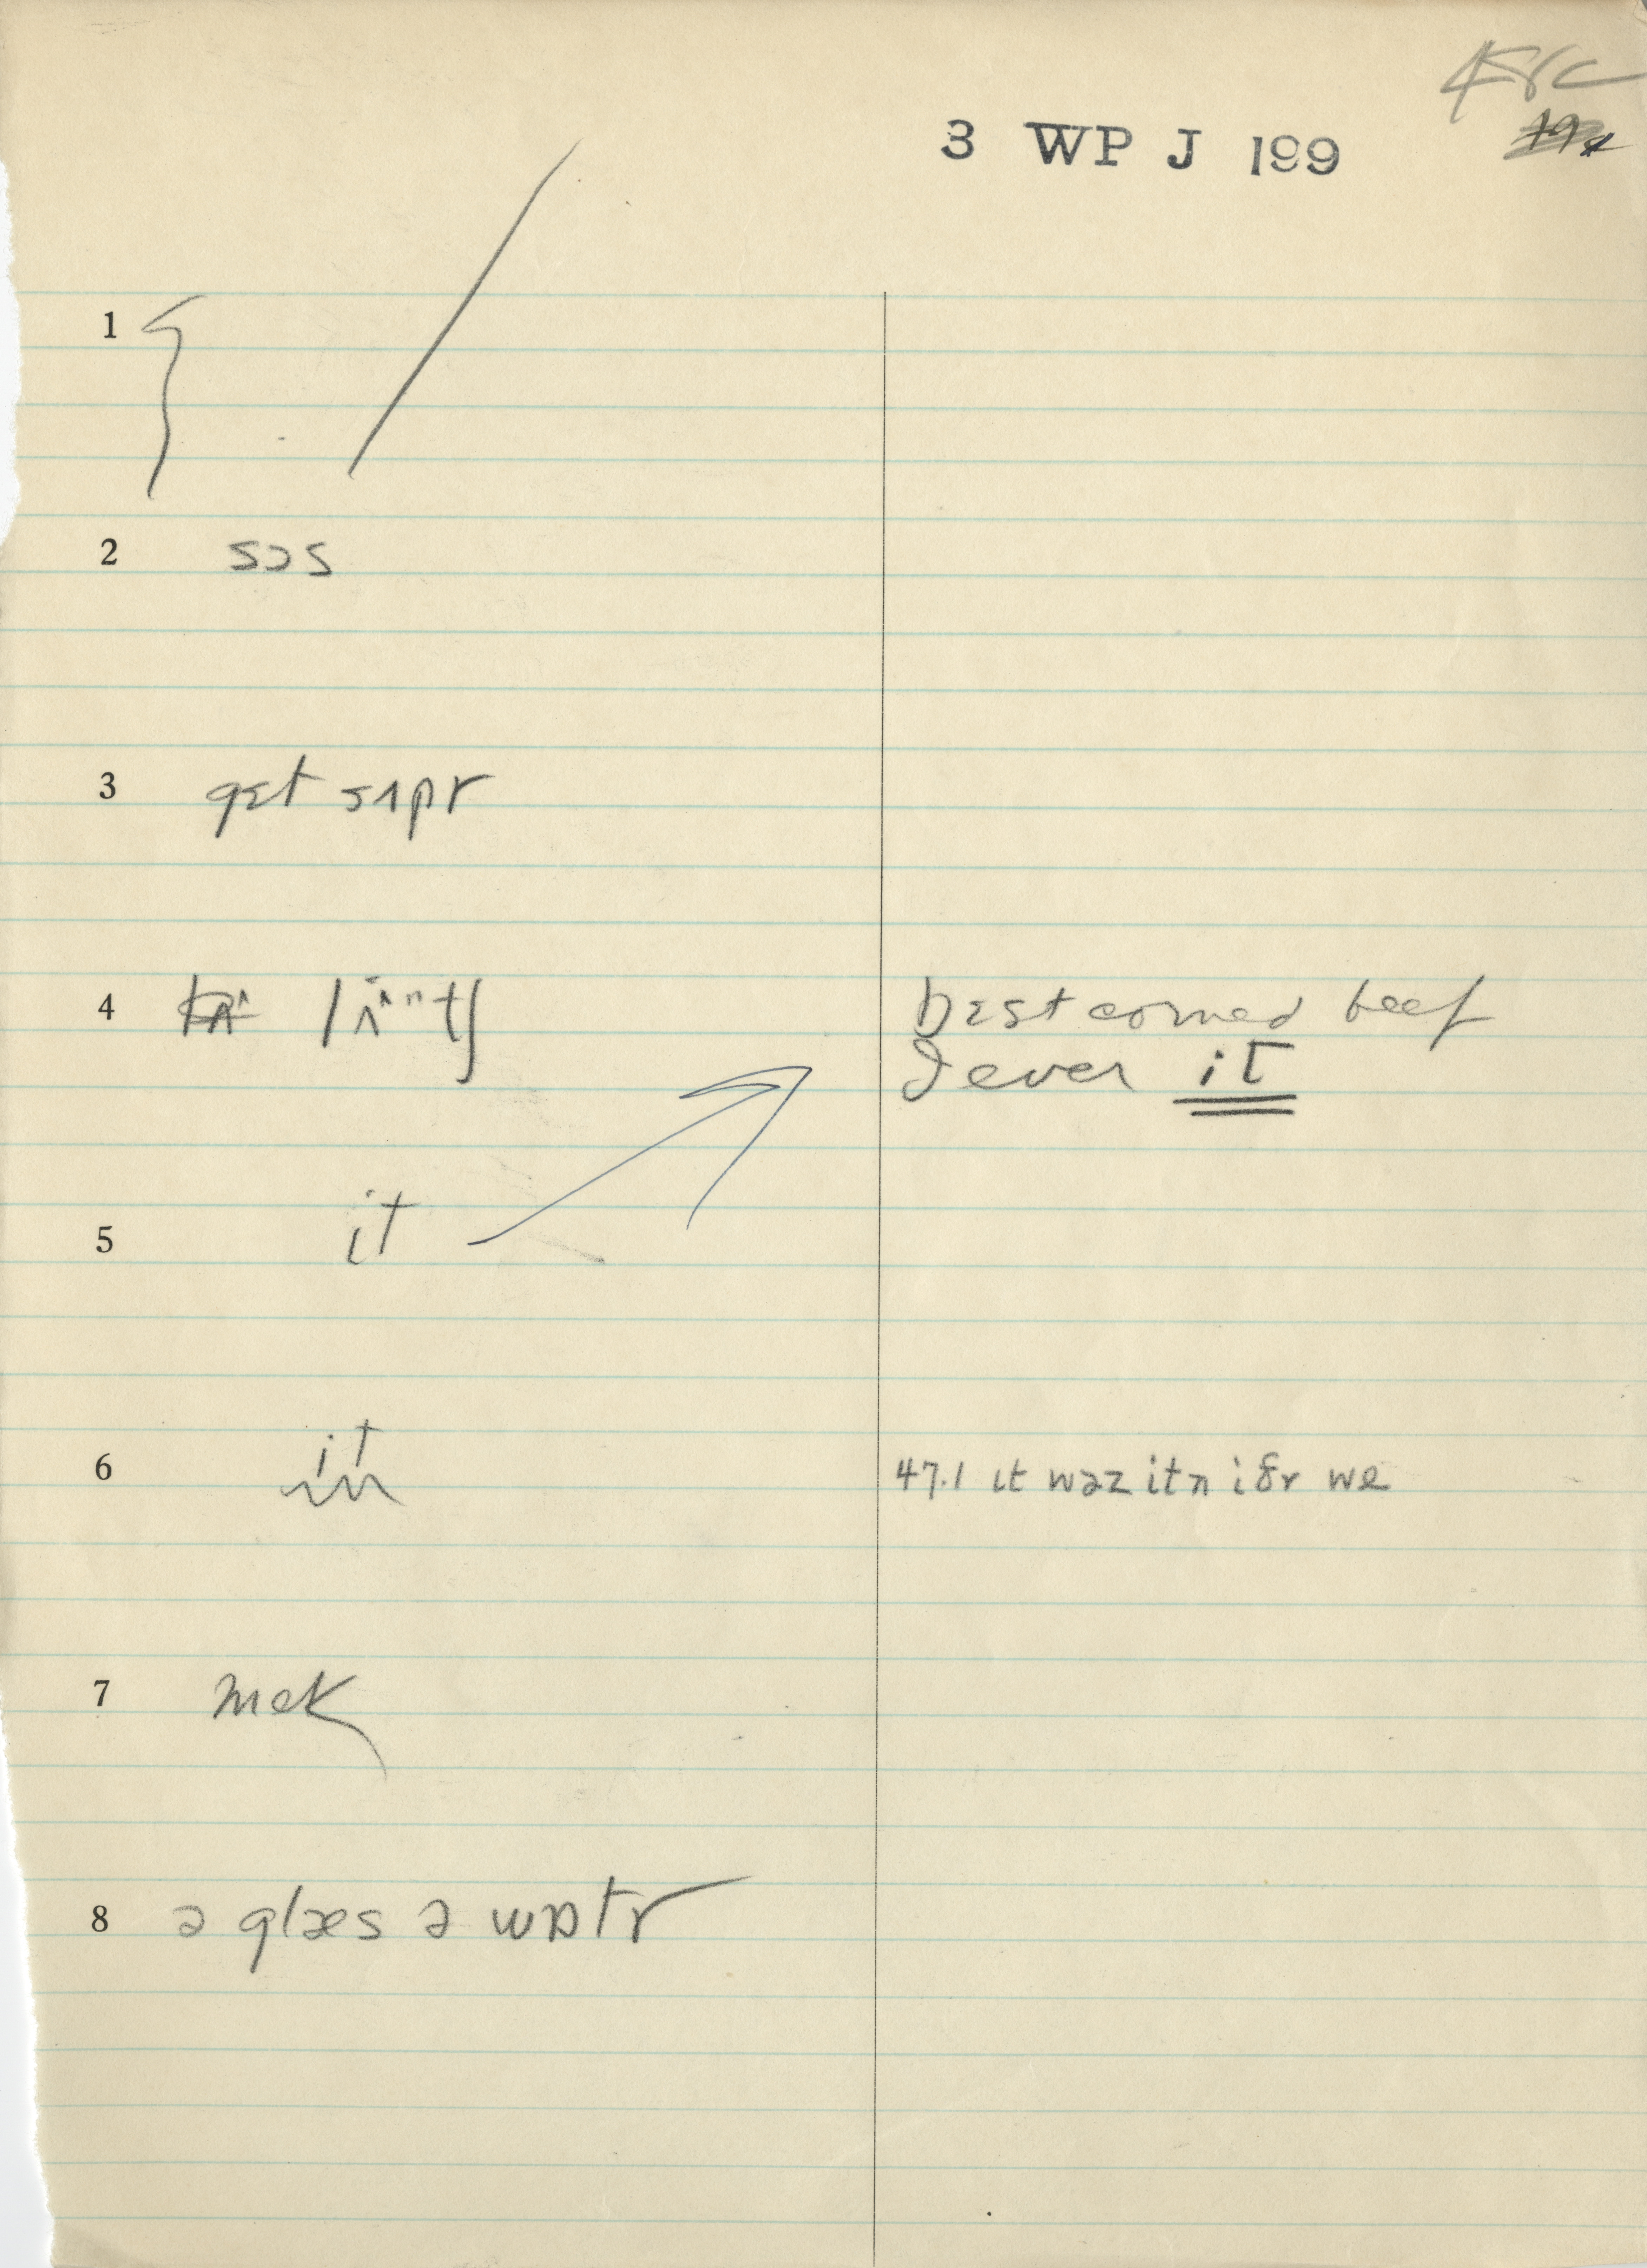 3 WP J 199
1
2 sɔs
3 gɛt sʌpr
4 lʌ̃ⁿtʃ bɛst corned beef
I ever it
5 it
6 it 47.1 ɪt wəz itn i ðr we
7 mek
8 ə glæs ə wɒtr